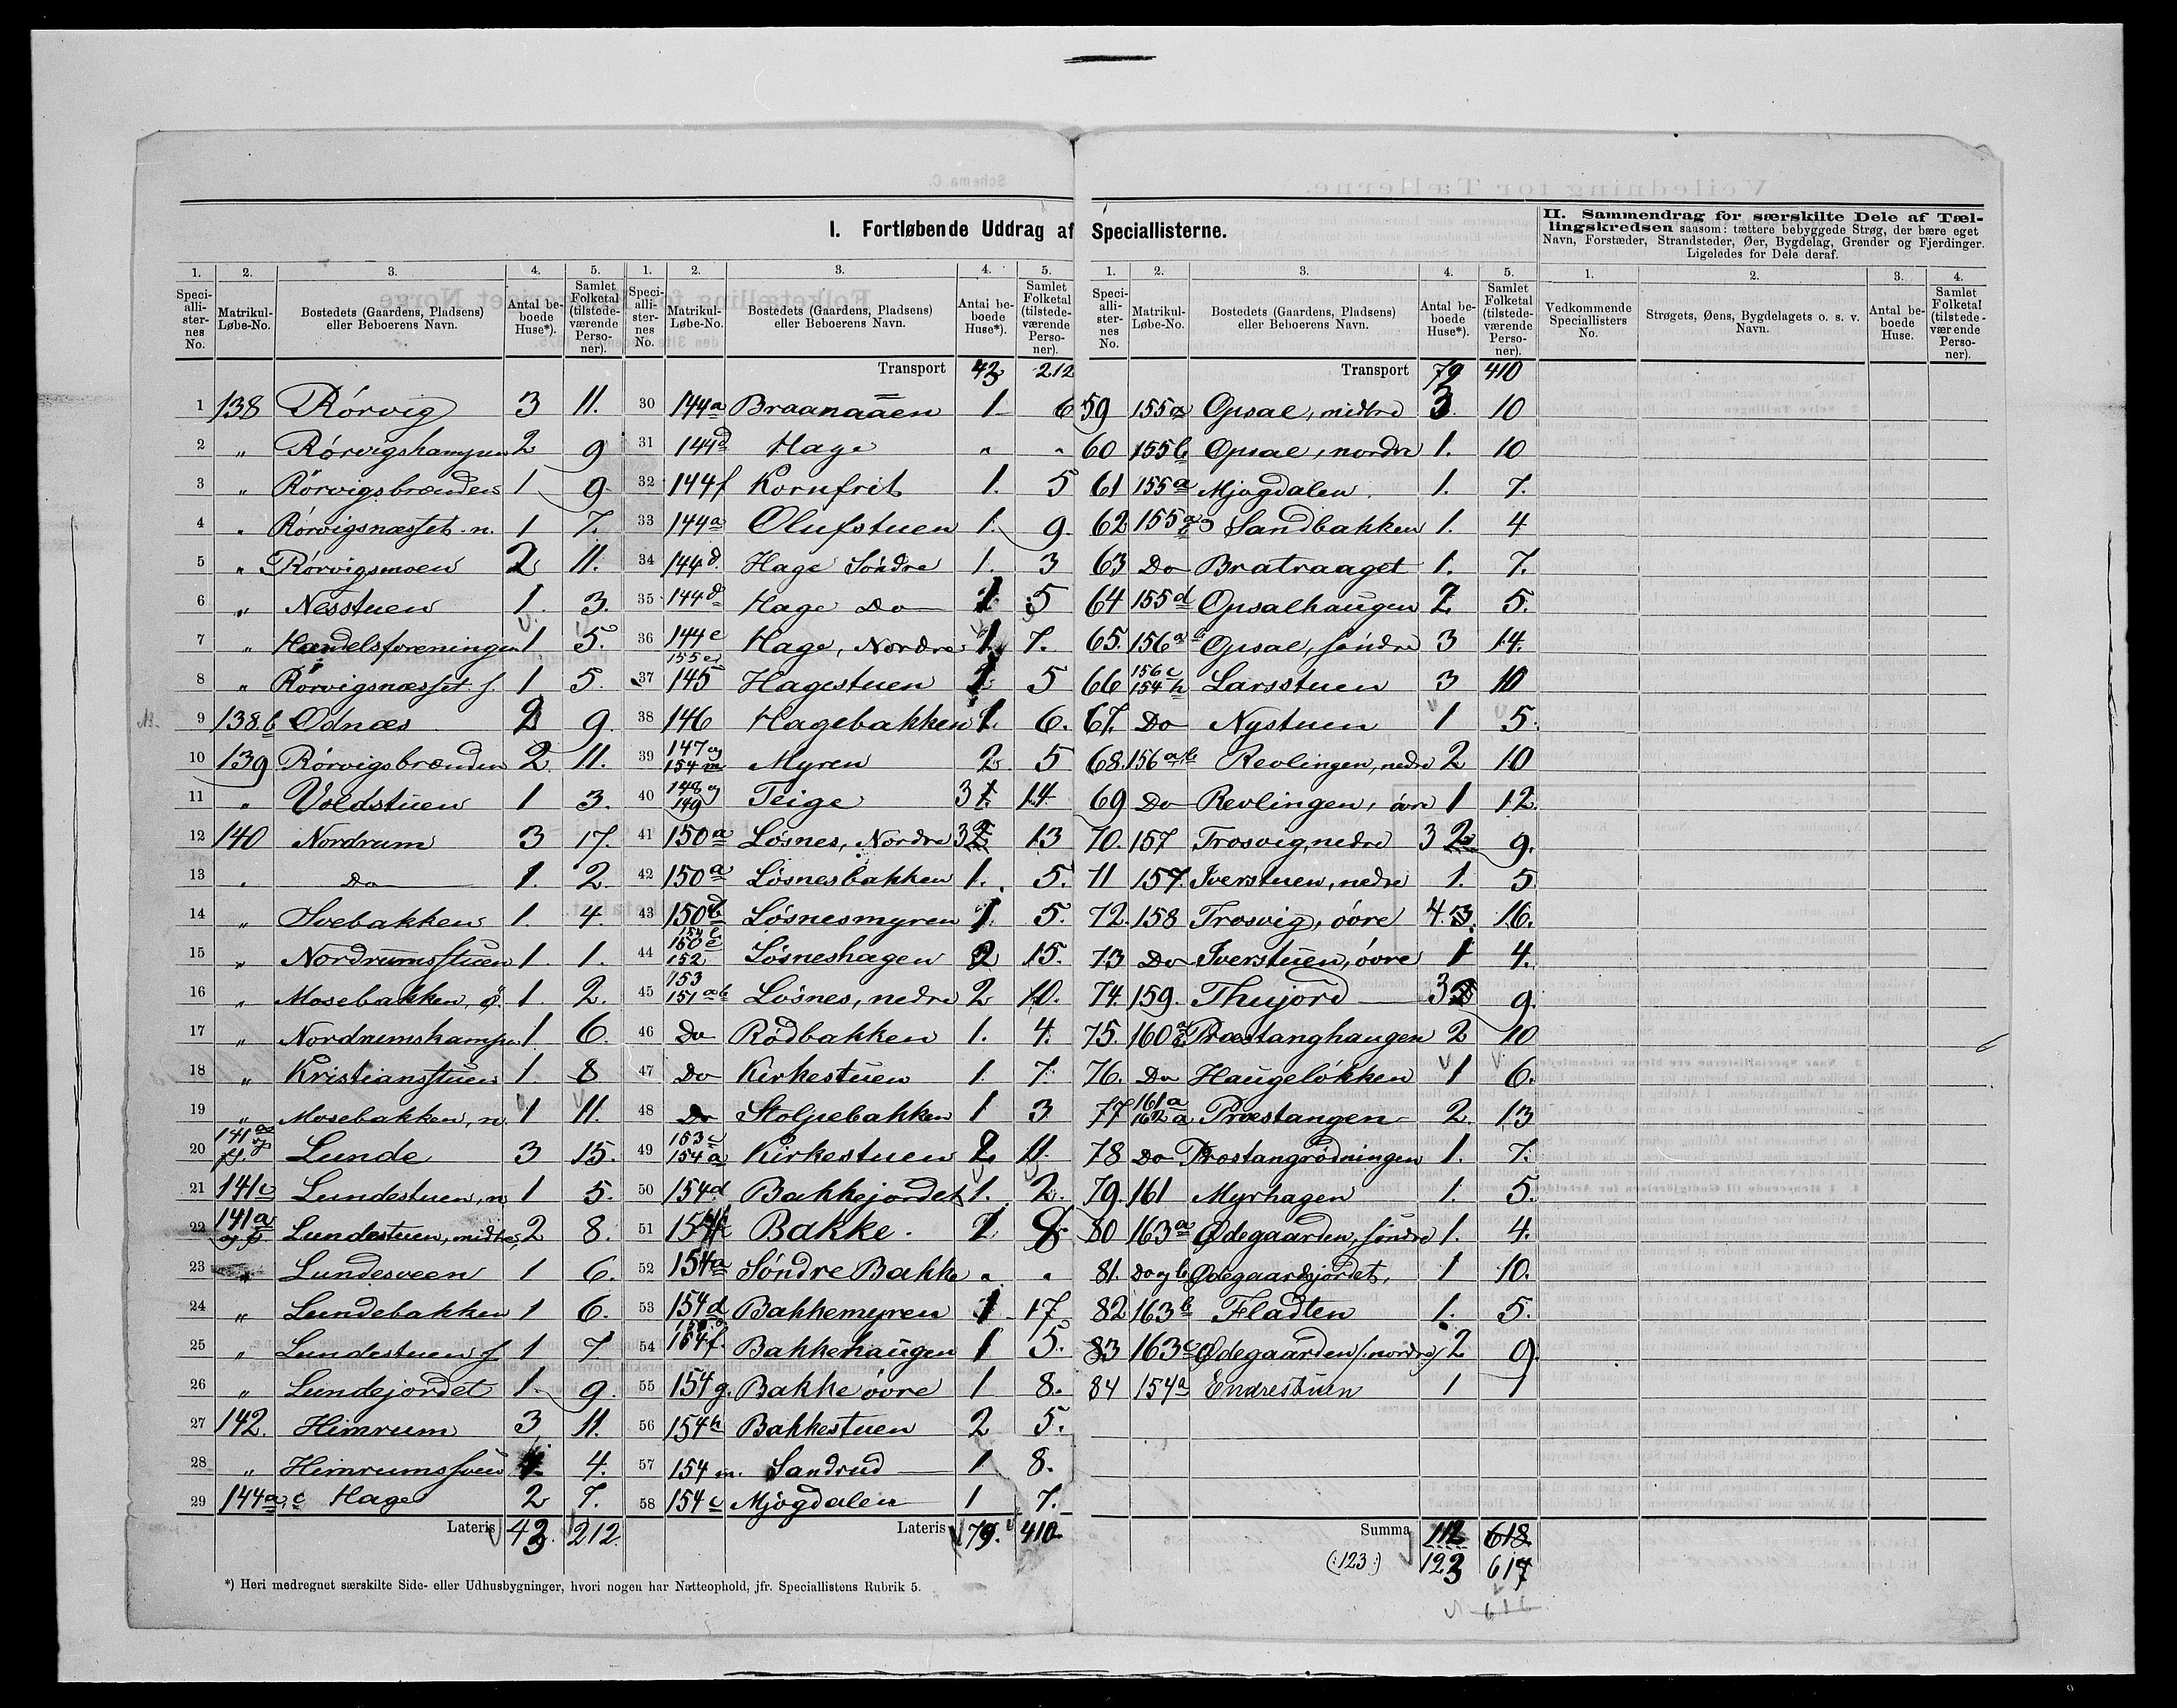 I. Fortløbende Uddrag af Speciallisterne.
II. Sammendrag for særskilte Dele af Tællingskredsen saasom: tættere bebyggede Strøg, der bære eget
Navn, Forstæder, Strandsteder, Øer, Bygdelag, Grender og Fjerdinger.
Ligeledes for Dele deraf.
1. 2. 3. 4. 5.
Speciallisternes No. Matrikul-Løbe-No. Bostedets (Gaardens, Pladsens) eller Beboerens Navn. Antal beboede Huse*). Samlet Folketal (tilstedeværende Personer).
1 138 Rörvig 3 11.
2 „ Rörvigshampen 2 9
3 „ Rörvigsbrænden 1 9
4 „ Rörvigsnæsset n. 1 7.
5 „ Rörvigsmoen 2 11.
6 „ Nesstuen 1. 3.
7 „ Handelsforeningen 1 5.
8 „ Rörvigsnæsset s. 1 5.
9 138.b Odnæs 2 9.
10 139 Rörvigsbrænden 2 11.
11 „ Voldstuen 1 3.
12 140 Nordrum 3 17.
13 „ Do 1. 2.
14 „ Svebakken 1. 4.
15 „ Nordrumsstuen 1. 1.
16 „ Mosebakken, ö. 1. 2.
17 „ Nordrumshampen 1 6.
18 „ Kristiansstuen 1. 8
19 „ Mosebakken, n. 1 11.
20 141 Lunde 3 15.
21 141c Lundestuen, n 1 5.
22 141a og f Lundestuen, midtre 2 8.
23 „ Lundesveen 1 6.
24 „ Lundebakken 1 6.
25 „ Lundestuen s 1 7
26 „ Lundejordet 1. 9.
27 142. Himrum 3 11.
28 „ Himrumssveen 4.
29 144a, c Hage 2 7.
Lateris 43 212.
1. 2. 3. 4. 5.
Speciallisternes No. Matrikul-Løbe-No. Bostedets (Gaardens, Pladsens) eller Beboerens Navn. Antal beboede Huse*). Samlet Folketal (tilstedeværende Personer).
Transport 43 212
30 144a Braanaaen 1 6
31 144d Hage „ „
32 144f Kornfrit 1. 5
33 144a Olufstuen 1. 9.
34 144d. Hage Söndre 1. 3
35 144d Hage Do 1 5
36 144e Hage, Nordre 1. 7.
37 145 Hagestuen 5
38 146 Hagebakken 1. 6.
39 147 og 154m Myren 2 5
40 148 og 149 Teige 3 14
41 150a Lösnes, Nordre 3 13
42 150a Lösnesbakken 1. 5.
43 150b Lösnesmyren 1. 5.
44 152 Lösneshagen 2 15.
45 153 151ab Lösnes, nedre 2 10.
46 Do Rödbakken 1. 4.
47 Do Kirkestuen 1 7.
48 Do Stolpebakken 1 3
49 153c 154a Kirkestuen 2 11.
50 154d Bakkejordet 1. 2.
51 Bakke. 8.
52 154a Söndre Bakke „ „
53 154d Bakkemyren 1 17
54 154f. Bakkehaugen 1 5.
55 154g. Bakke övre 1 8.
56 154h Bakkestuen 2 5.
57 154 m. Sandrud 1 8.
58 154c Mjögdalen 1 7.
Lateris 79. 410
1. 2. 3. 4. 5.
Speciallisternes No. Matrikul-Løbe-No. Bostedets (Gaardens, Pladsens) eller Beboerens Navn. Antal beboede Huse*). Samlet Folketal (tilstedeværende Personer).
Transport 79 410
59 155a Opsal, midtre 3 10
60 155b Opsal, nordre 1. 10
61 155a Mjogdalen. 1. 7.
62 155a Sandbakken 1. 4
63 Do Bratraaget 1. 7.
64 155d Opsalhaugen 2 5.
65. 156ab Opsal, söndre 3 14.
66 156c 154h Larsstuen 3 10
67. Do Nystuen 1 5.
68. 156ab Revlingen, nedre 2 10
69 Do Revlingen, övre 1 12
70. 157 Trosvig, nedre 3 2 9.
71 157. Iverstuen, nedre 1. 5
72. 158 Trosvig, övre 4. 3. 16.
73 Do Iverstuen, övre 1 4.
74. 159. Thujord 3 9.
75. 160 Præstanghaugen 2 10
76. Do Haugelökken 1 6.
77 161a 162a Præstangen 2. 13
78 Do Præstangrödningen 1. 7.
79. 161 Myrhagen 1. 5.
80 163a Ødegaarden, söndre 1. 4.
81. Do og b Ødegaardsjordet. 1 10.
82 163b Fladten 1. 5.
83 163c Ødegaarden (:nordre) 2 9.
84 154a Endrestuen 1 1
Summa 112 618
(:123:) 123 617
616
1. 2. 3. 4.
Vedkommende Speciallisters No. Strøgets, Øens, Bygdelagets o. s. v. Navn. Antal beboede Huse. Samlet Folketal (tilstedeværende Personer).
*) Heri medregnet særskilte Side- eller Udhusbygninger, hvori nogen har Natteophold, jfr. Speciallistens Rubrik 5.